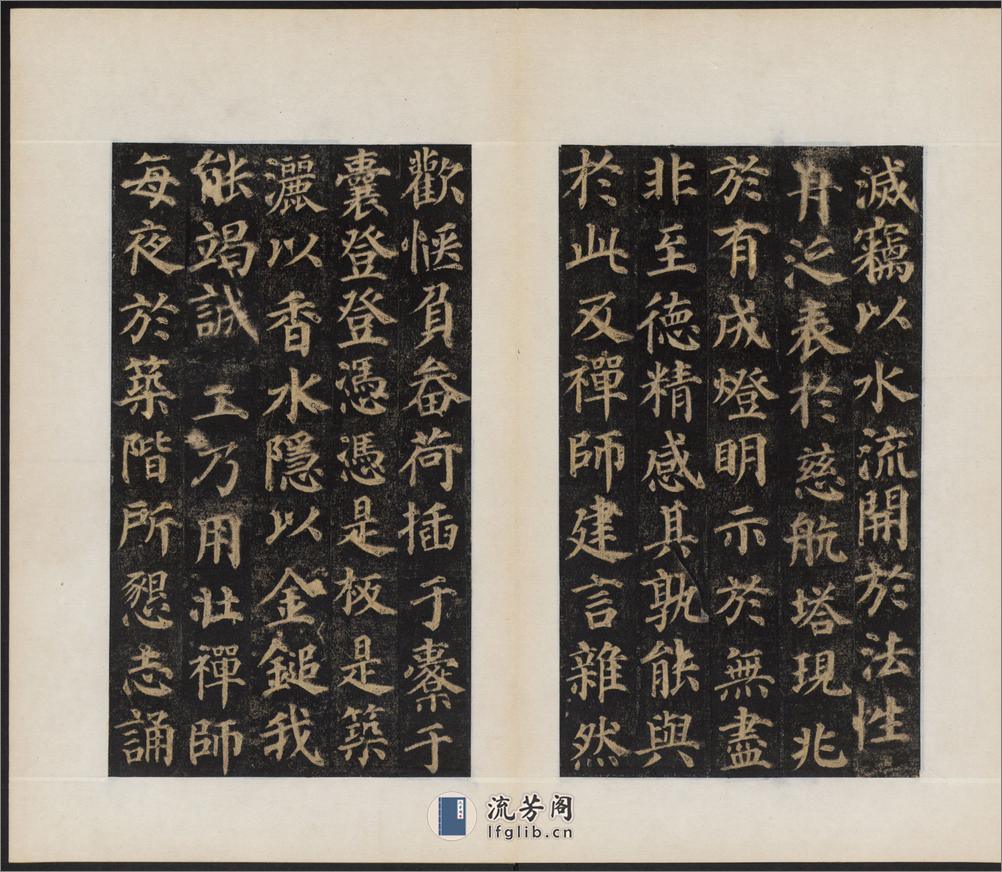 滅竊以水流開於法性
舟泛表於慈航塔現兆
於有成燈明示於無盡
非至德精感其孰能與
於此及禪師建言雜然
歡愜負畚荷插于橐于
囊登登憑憑是板是築
灑以香水隱以金鎚我
能竭誠工乃用壯禪師
每夜於築階所懇志誦
流芳阁
lfglib.cn